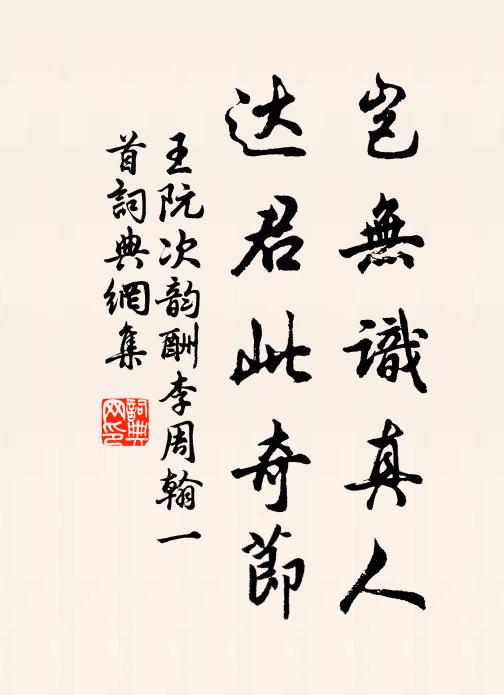 岂無識真人
达君此奇節
王阮次韵酬李周翰一
首詞典網集
詞典网印